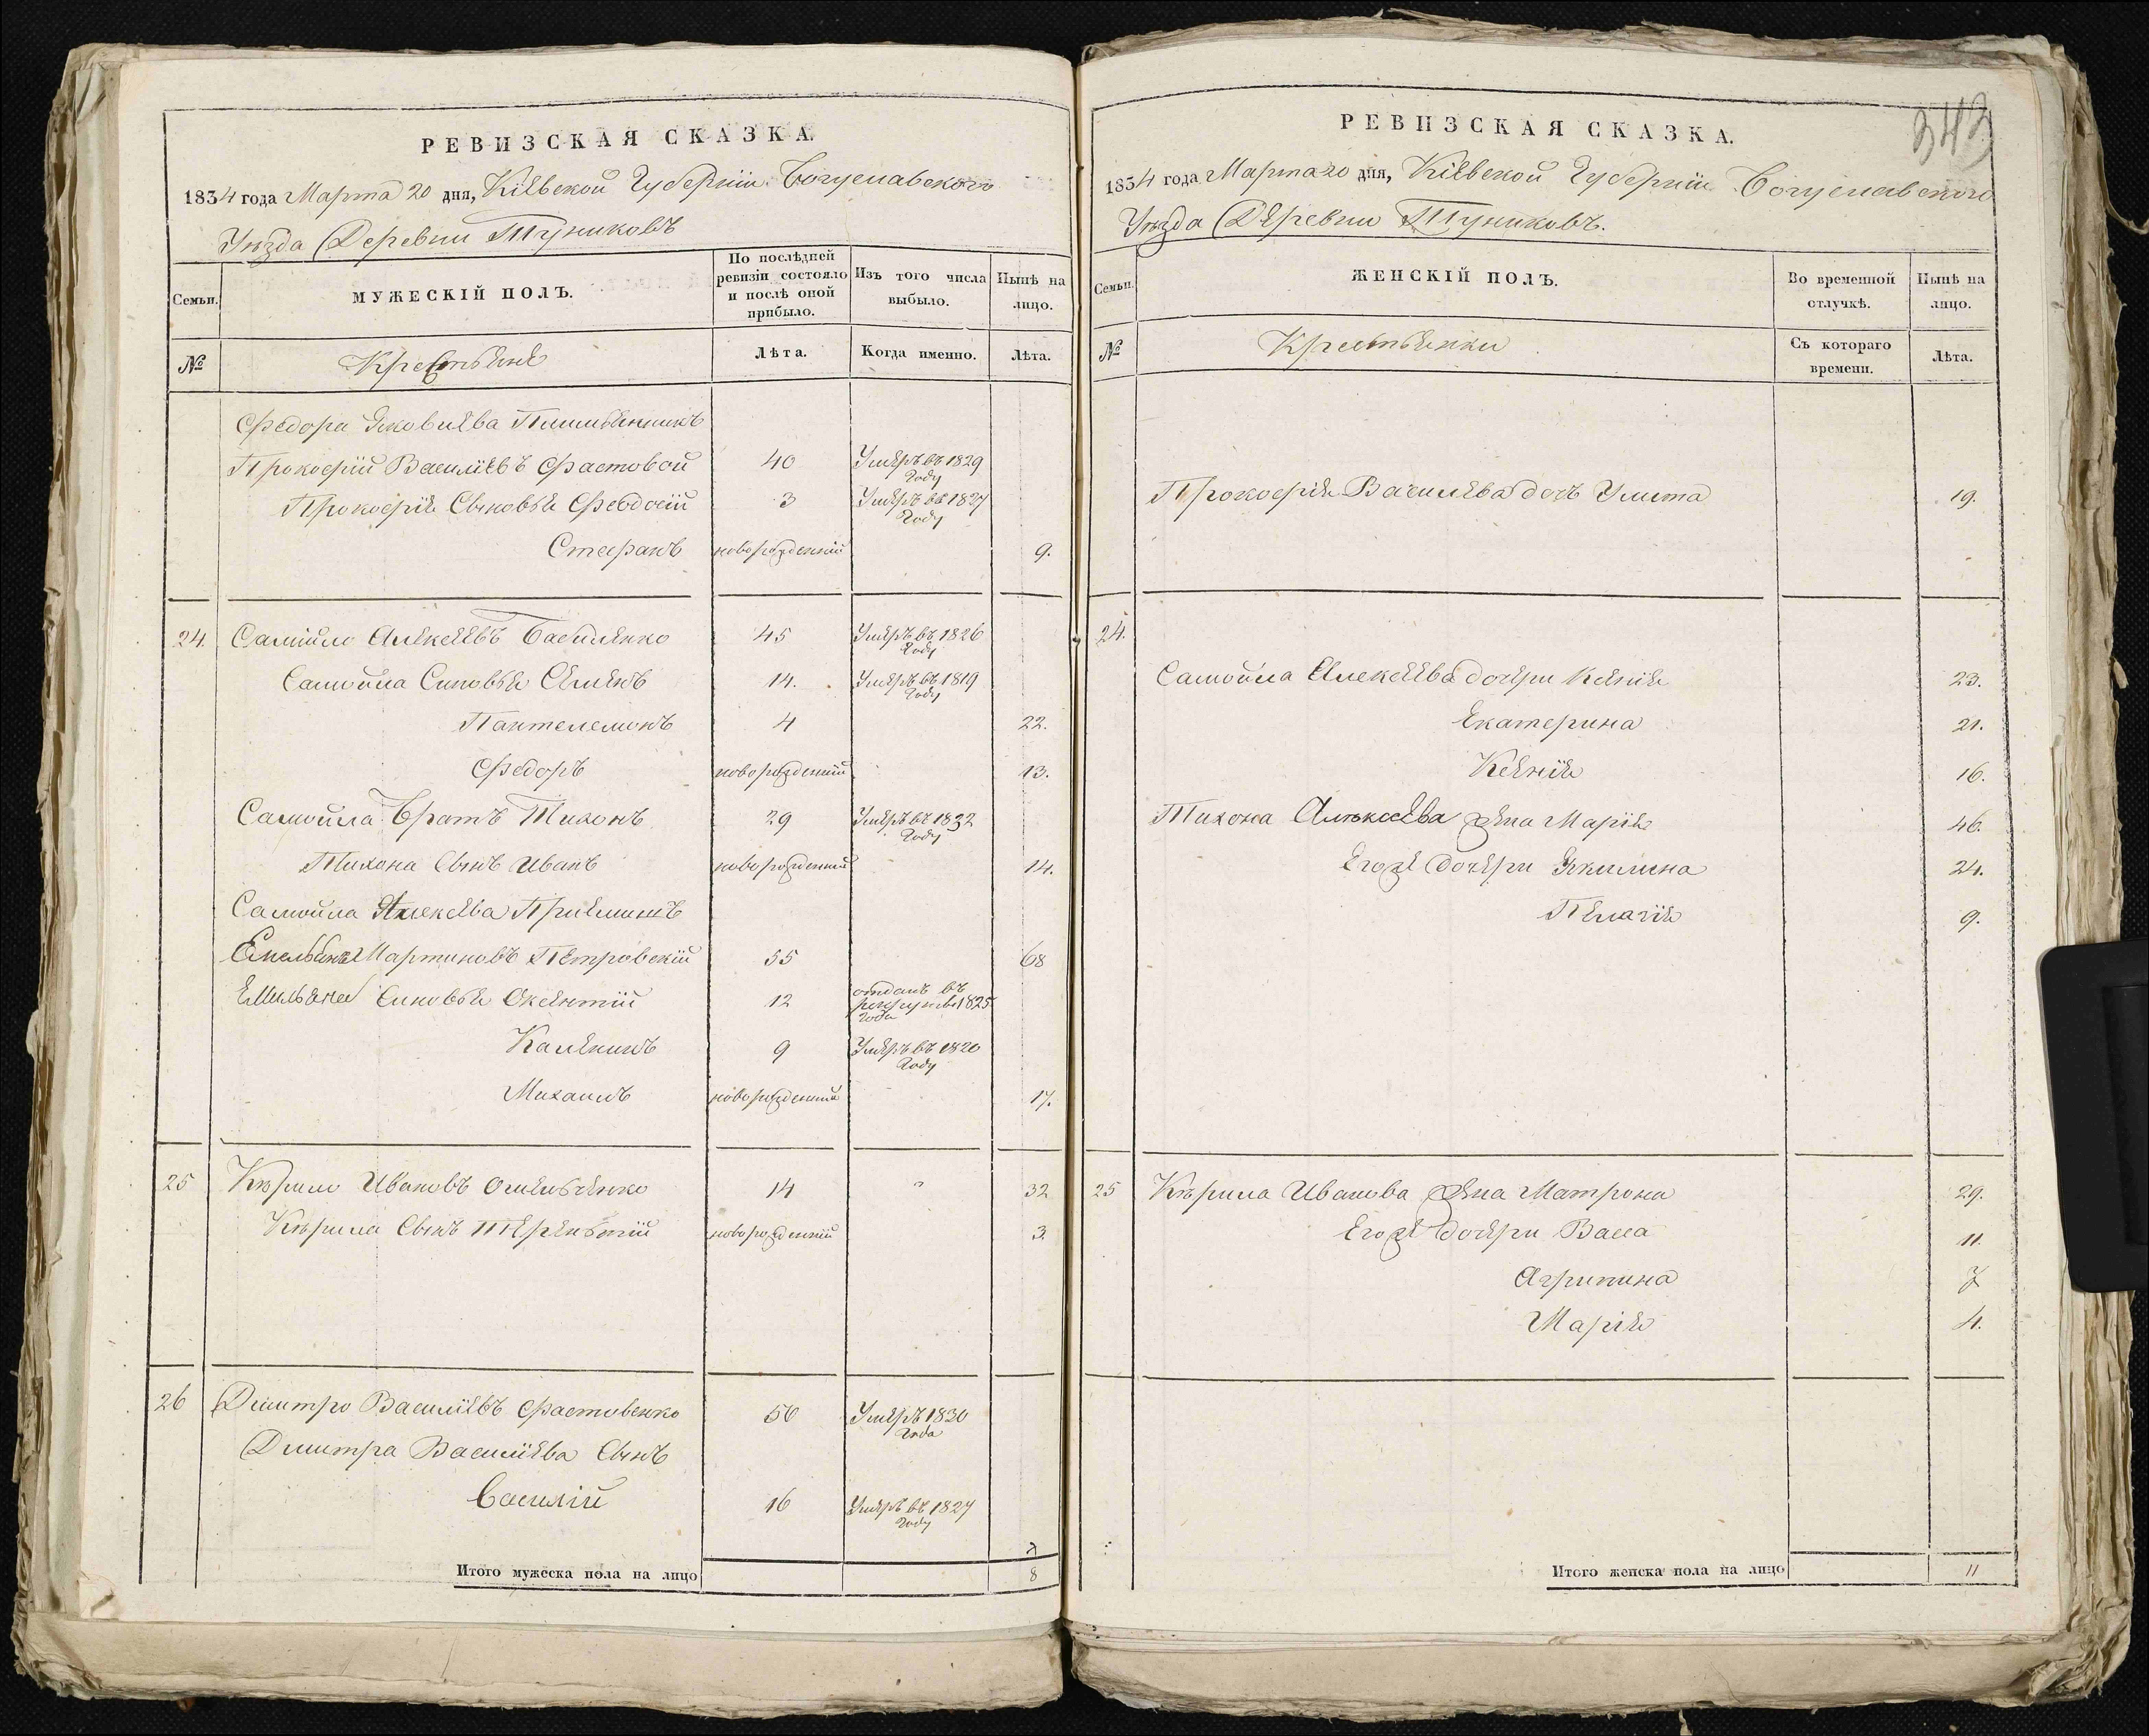 РЕВИЗСКАЯ СКАЗКА.
1834 года Марта 20 дня, Кіевской Губерніи Богуславского
Уезда Деревни Туниковъ
Семьи.
МУЖЕСКІЙ ПОЛЪ.
По послѣдней ревизіи состояло и послѣ оной прибыло.
Изъ того числа выбыло.
Нынѣ на лицо.
№
Крестьяне
Лѣта.
Когда именно.
Лѣта.
Федора Яковлева
Прокофій Василіевъ Фастовой 40 Умеръ въ 1829 Году
Прокофія Сыновья Феодосій 3 Умеръ въ 1827 Году
Стефанъ новорожденній 9.
24. Самійло Алексеевъ Василенко 45 Умеръ въ 1826 Году
Самойла Синовья Семенъ 14. Умеръ въ 1819 Году
Пантелемонъ 4 22.
Федоръ новорожденній 13.
Самойла Братъ Тихонъ 29 Умеръ въ 1832 Году
Тихона Сынъ Иванъ новорожденній 14.
Самойла Алексева Приемишъ
Емельянъ Мартиновъ Петровскій 55 68
Емельяна Синовья Оксентій 12 отданъ въ рекруты 1825 года
Каленикъ 9 Умеръ въ 1820 Году
Михаилъ новорожденній 17.
25 Кѣрило Ивановъ 14 32
Кѣрила Сынъ Терентій новорожденній 3.
26 Димитро Василіевъ Фастовенко 56 Умеръ 1830 Года
Димитра Василіева Сынъ
Василій 16 Умеръ въ 1827 Году
7
Итого мужеска пола на лицо 8
343
РЕВИЗСКАЯ СКАЗКА.
1834 года Марта 20 дня, Кіевской Губерніи Богуславского
Уезда Деревни Туниковъ.
Семьи.
ЖЕНСКІЙ ПОЛЪ.
Во временной отлучкѣ.
Нынѣ на лицо.
№
Крестьянки
Съ котораго времени.
Лѣта.
Прокофія Васильева дочъ Улита 19.
24.
Самойла Алексеева дочери Ксенія 23.
Екатерина 21.
Ксенія 16.
Тихона Алексеева жена Марія 46.
Егоже дочери Якилина 24.
Пелагія 9.
25 Кѣрила Иванова жена Матрона 29.
Егоже дочери Васса 11.
Агрипина 7
Марія 4.
Итого женска пола на лицо 11